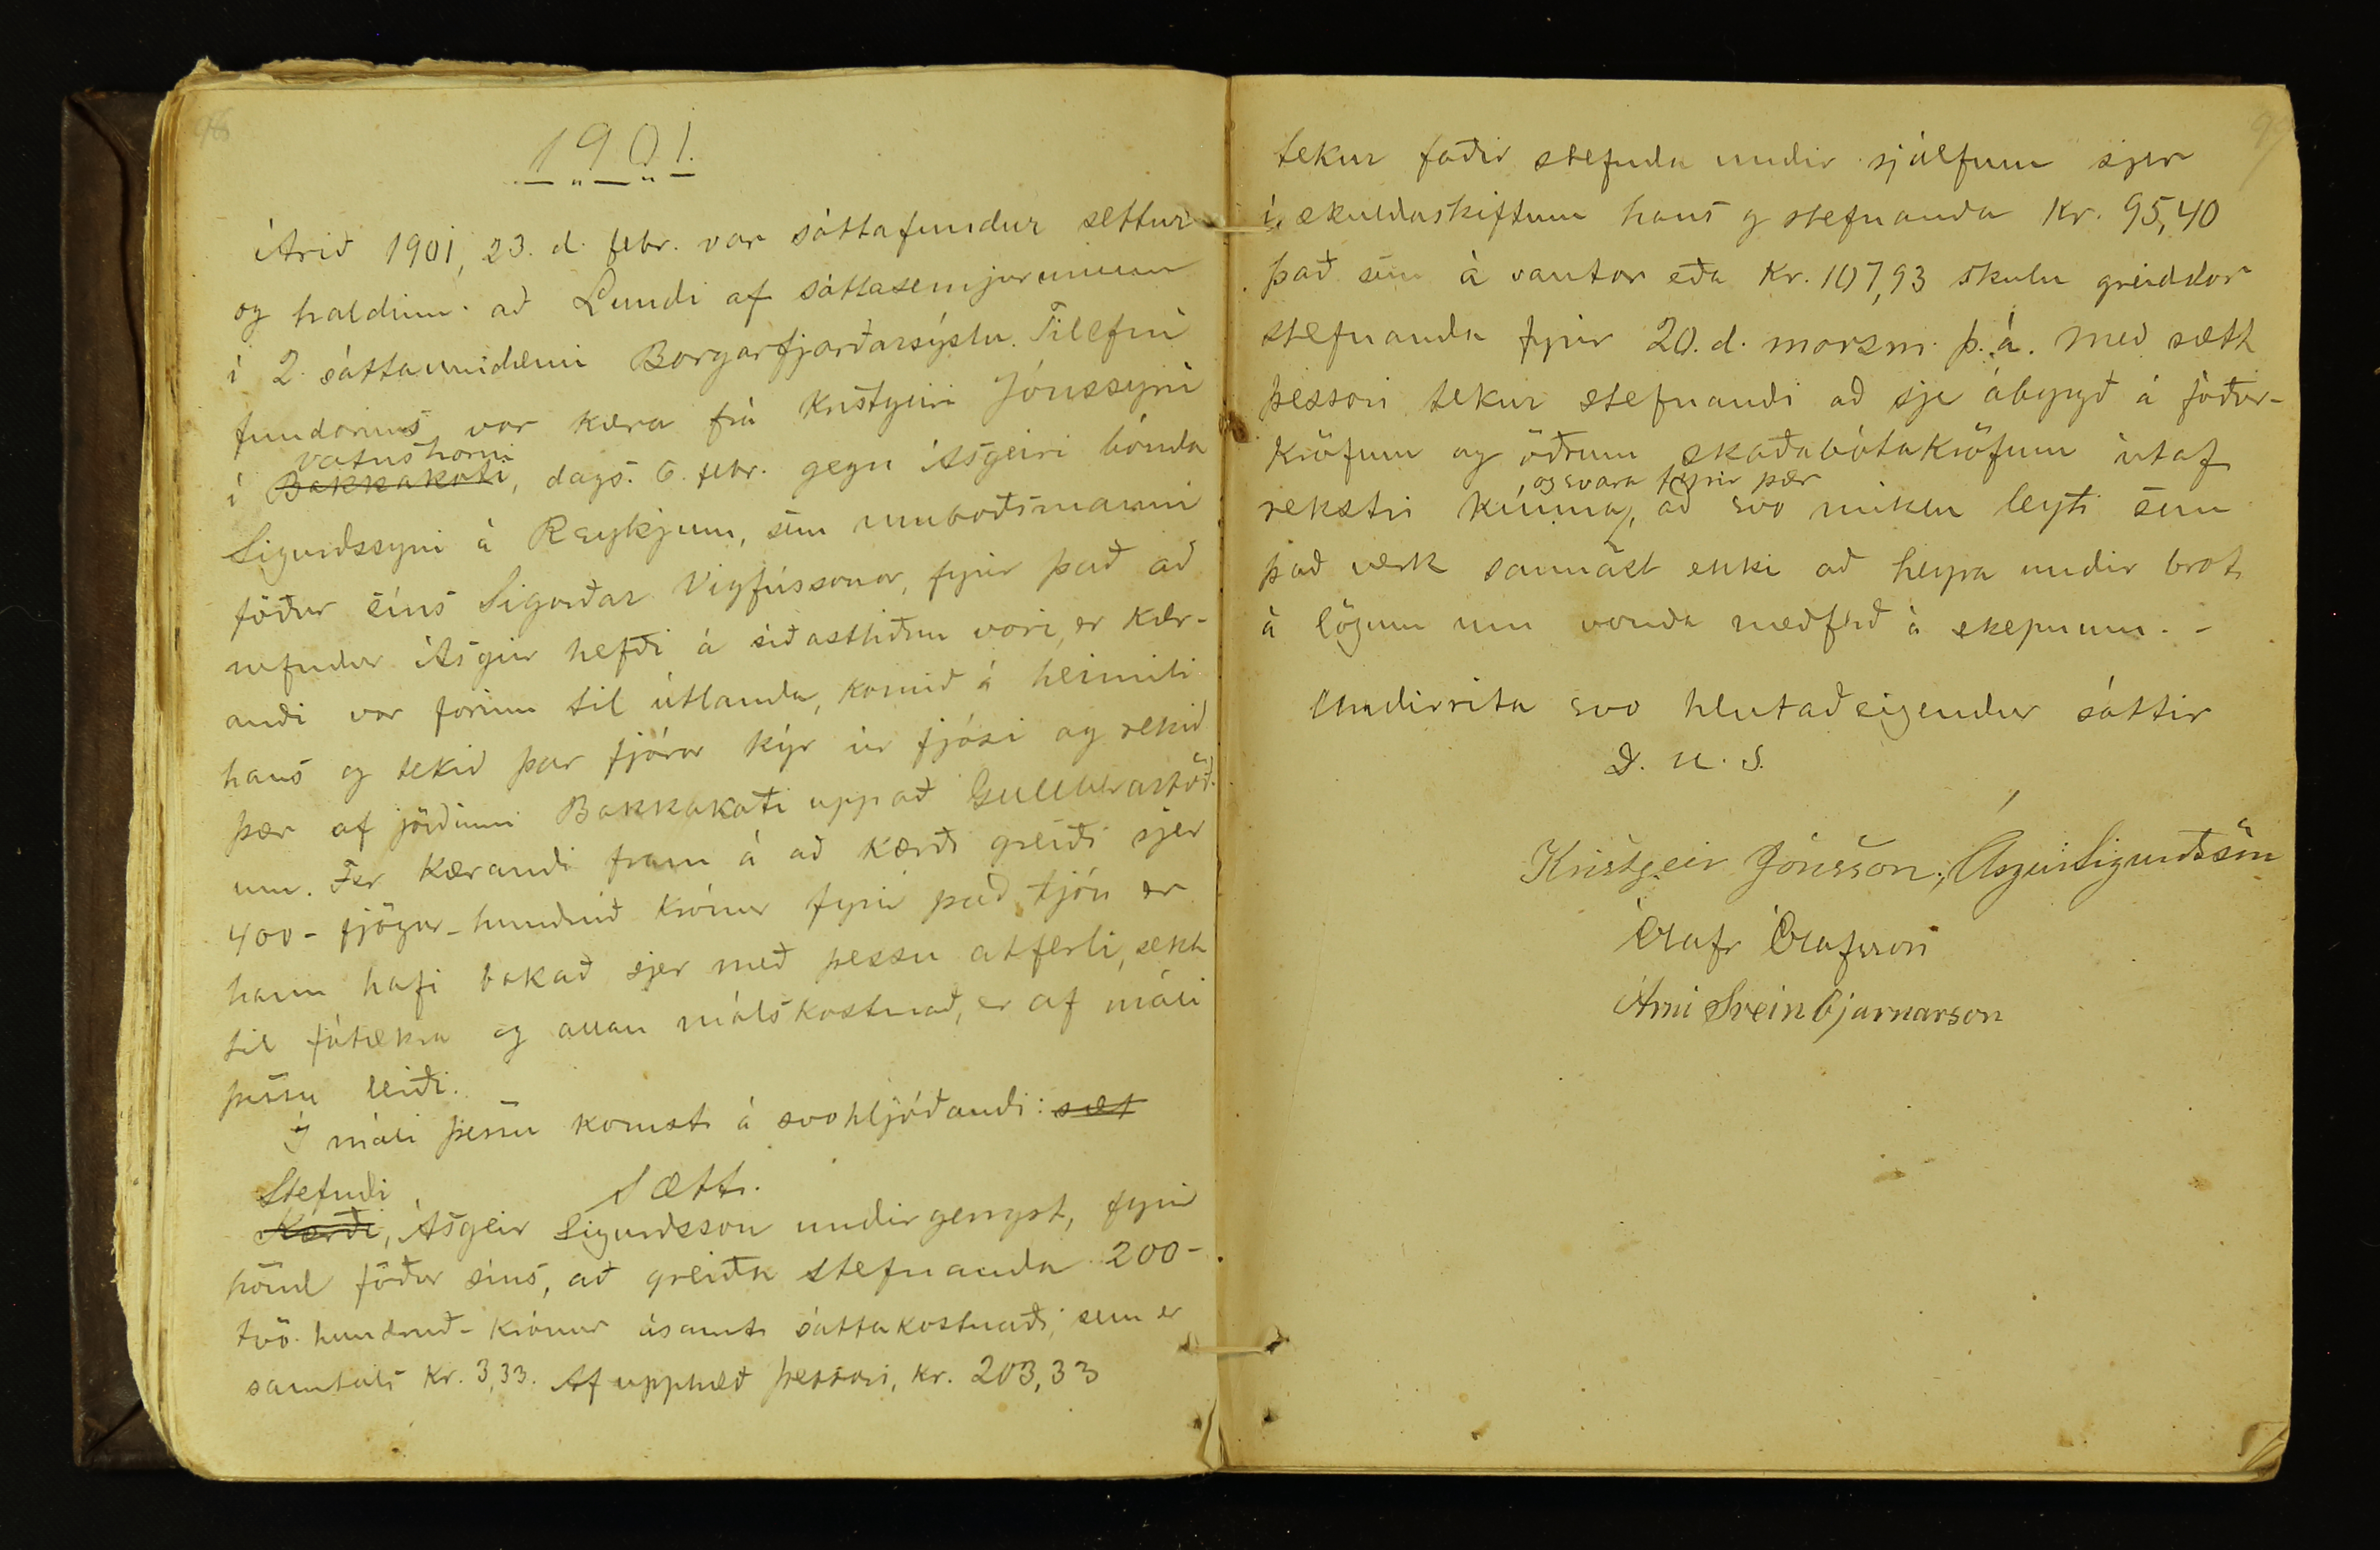 98
1901.
Árið 1901, 23. d. febr. var sáttafundur settur
og haldinn að Lundi af sáttasemjurunum
í 2. sáttaumdæmi Borgarfjarðarsýslu. Tilefni
fundarins var kæra frá Kristgeiri Jónssyni
vatnshorni
í Bakkakoti, dags. 6. febr. gegn Ásgeiri bónda
Sigurðssyni á Reykjum, sem umboðsmanni
föður síns Sigurðar Vigfússonar, fyrir það að
nefndur Ásgeir hefði á síðastliðnu vori, er kær-
andi var farinn til útlanda, komið á heimili
hans og tekið þar fjórar kýr úr fjósi og rekið
þær af jörðinni Bakkakoti upp að Gullberastöð-
um. Fer kærandi fram á að kærði greiði sjer
400- fjögur-hundruð krónur fyrir það tjón er
hann hafi bakað sjer með þessu atferli, sekt
til fátækra og allan málskostnað, er af máli
þessu leiði.
Í máli þessu komst á svohljóðandi: sæt
Sætt.
Stefndi
Kærði, Ásgeir Sigurðsson undirgengst, fyrir
hönd föður síns, að greiða stefnanda 200-
tvö-hundruð-krónur ásamt sáttakostnaði, sem er
samtals kr. 3,33. Af upphæð þessari, kr. 203,33
99
tekur faðir stefnda undir sjálfum sjer
í skuldaskiftum hans og stefnanda kr. 95,40
það sem á vantar eða kr. 107,93 skulu greiddar
stefnanda fyrir 20. d. marzm. þ. á. Með sætt
þessari tekur stefnandi að sje ábyrgð á fóður-
kröfum og öðrum skaðabótakröfum útaf
, og svara fyrir þær
rekstri kúnna, að svo miklu leyti sem
það verk sannast ekki að heyra undir brot
á lögum um vonda meðferð á skepnum. -
Undirrita svo hlutaðeigendur sáttir
D. u. s.
Kristgeir Jónsson, Ásgeir Sigurðsson
Ólafr Ólafsson
Árni Sveinbjarnarson